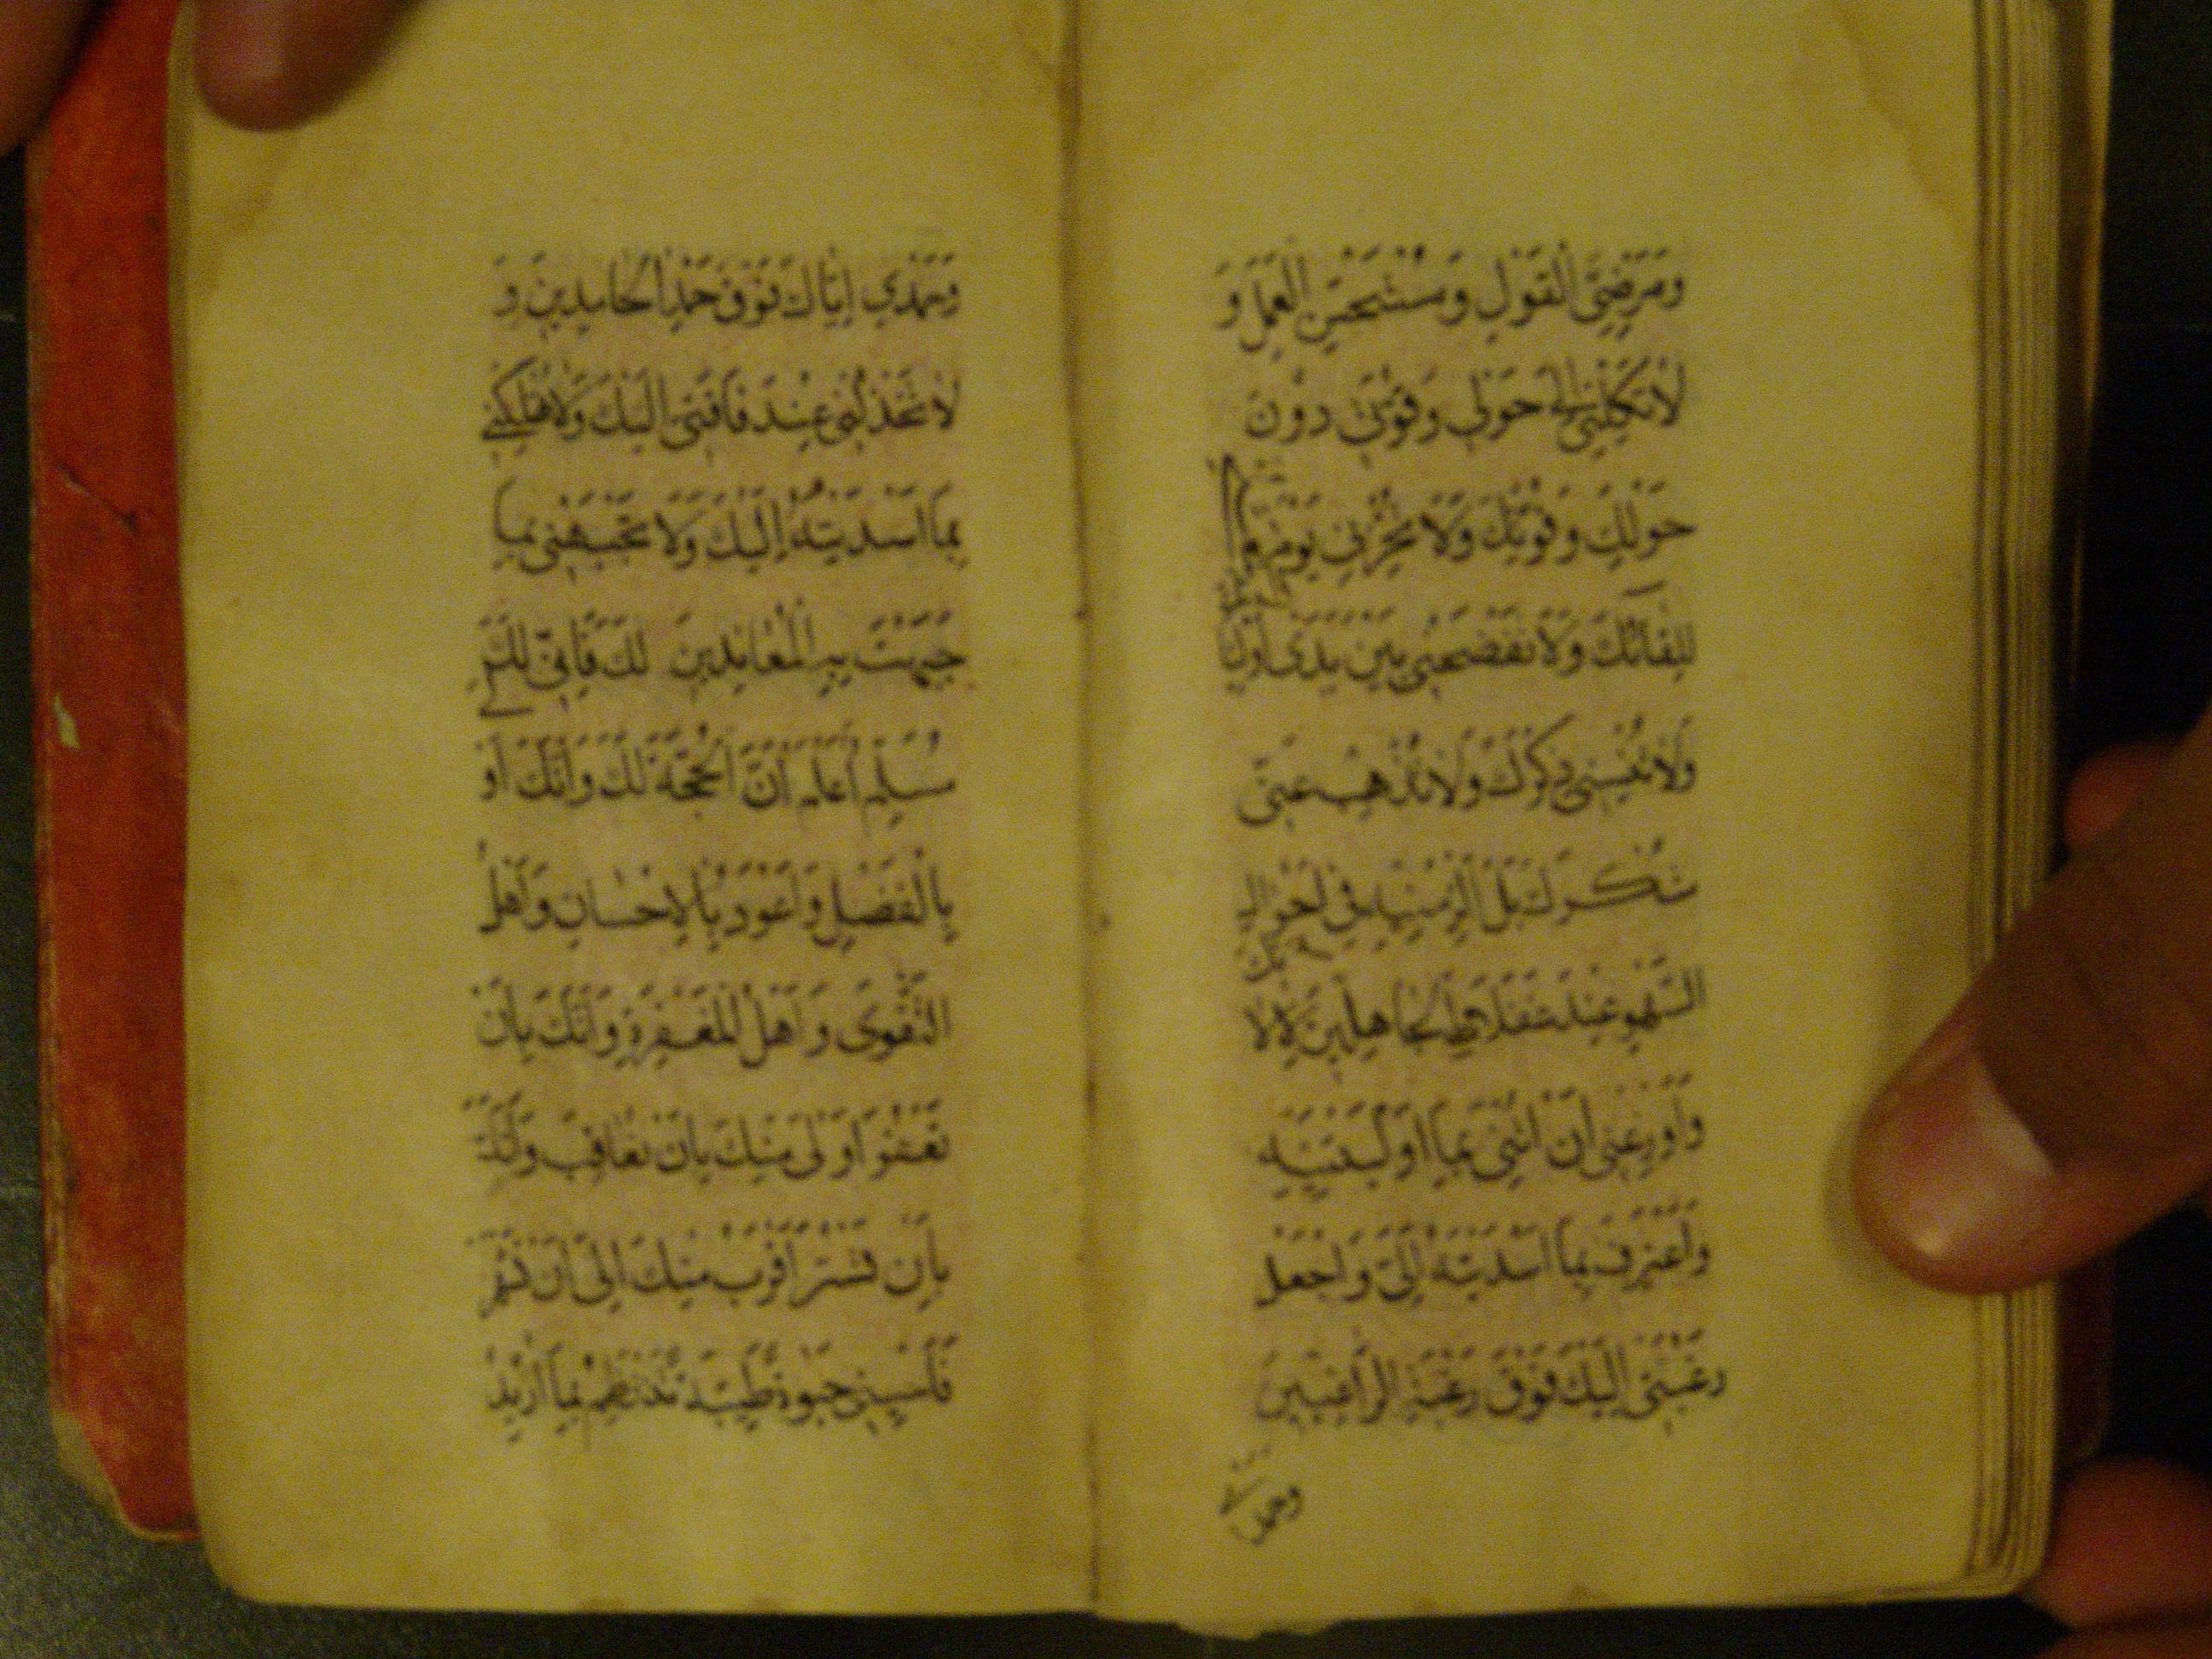 وَمَرْضِيَّ الْقَوْلِ وَمُسْتَحْسَنِ الْعَمَلِ وَ
لَا تَكِلْنِي إِلَى حَوْلِي وَقُوَّتِي دُونَ
حَوْلِكَ وَقُوَّتِكَ وَلَا تُخْزِنِي يَوْمَ
لِلِقَائِكَ وَلَا تَفْضَحْنِي بَيْنَ يَدَيْ أَوْلِيَا
وَلَا تُنْسِنِي ذِكْرَكَ وَلَا تُذْهِبْ عَنِّي
شُكْرَكَ بَلْ أَلْزِمْنِيهِ فِي أَحْوَالِ
السَّهْوِ عِنْدَ غَفَلَاتِ الْجَاهِلِينَ لِآلَا
ئِكَ
وَأَوْزِعْنِي أَنْ أُثْنِيَ بِمَا أَوْلَيْتَنِيهِ
وَأَعْتَرِفَ بِمَا أَسْدَيْتَهُ إِلَيَّ وَاجْعَلْ
رَغْبَتِي إِلَيْكَ فَوْقَ رَغْبَةِ الرَّاغِبِينَ
وحمدي
وَحَمْدِي إِيَّاكَ فَوْقَ حَمْدِ الْحَامِدِينَ وَ
لَا تَخْذُلْنِي عِنْدَ فَاقَتِي إِلَيْكَ وَلَا تُهْلِكْنِي
بِمَا أَسْدَيْتُهُ إِلَيْكَ وَلَا تَجْبَهْنِي بِمَا
جَبَهْتَ بِهِ الْمُعَانِدِينَ لَكَ فَإِنِّي لَكَ
مُسَلِّمٌ أَعْلَمُ أَنَّ الْحُجَّةَ لَكَ وَأَنَّكَ أَوْ
بِالْفَضْلِ وَأَعْوَدُ بِالْإِحْسَانِ وَأَهْلُ
التَّقْوَى وَأَهْلُ الْمَغْفِرَةِ وَأَنَّكَ بِأَنْ
تَعْفُوَ أَوْلَى مِنْكَ بِأَنْ تُعَاقِبَ وَأَنَّكَ
بِأَنْ تَسْتُرَ أَقْرَبُ مِنْكَ إِلَى أَنْ تَشْهَرَ
فَأَحْيِنِي حَيٰوةً طَيِّبَةً تَنْتَظِمُ بِمَا أُرِيدُ